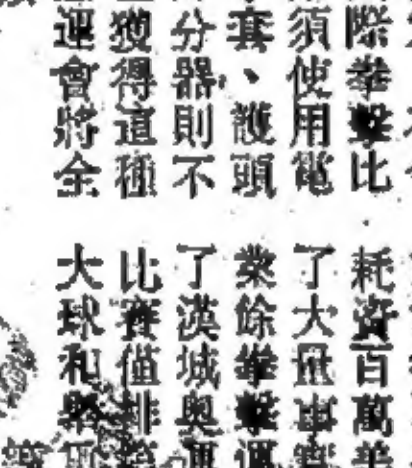 際拳擊比
須使用電
套、護頭
分器則不
獲得這種
運會將全
耗資百萬美
了大量事實
業餘拳擊運
了漢城奧運
比賽僅排
大球和